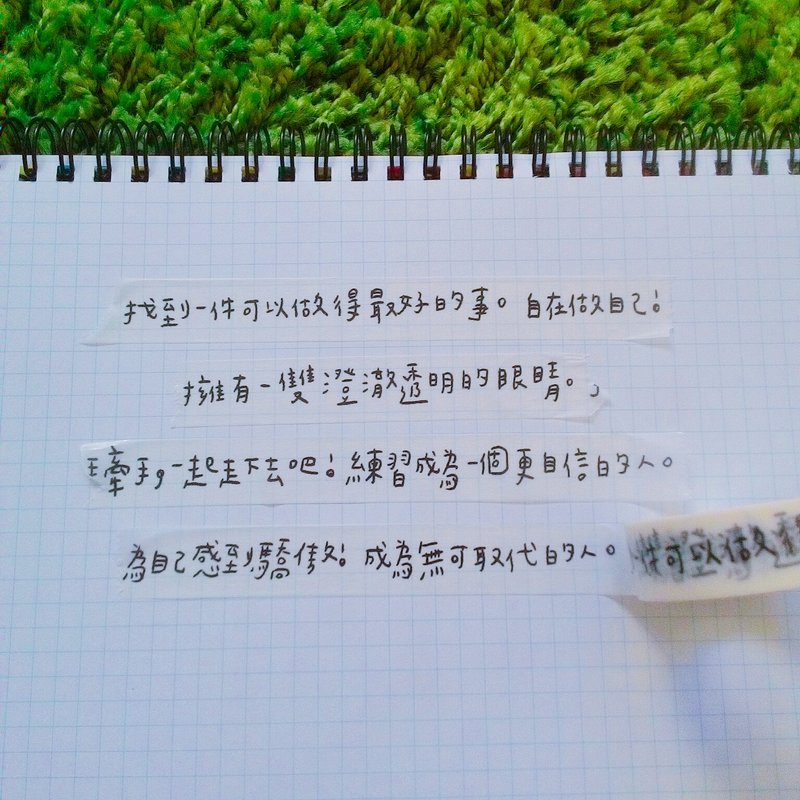 找到一件可以做得最好的事。自在做自己!
擁有一隻澄澈透明的眼睛。
牽手,一起走下去吧!練習成為一個更自信的人。
為自己感到驕傲!成為無可取代的人。
件可以做